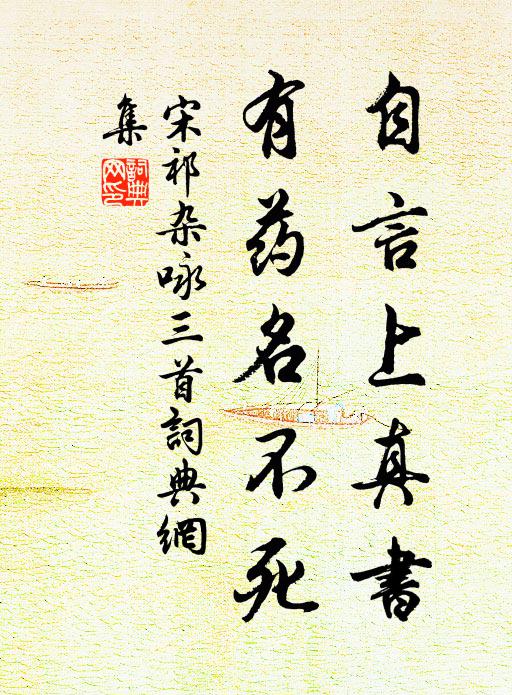 自言上真書
有药名不死
宋祁杂咏三首詞典網
集
詞典網印